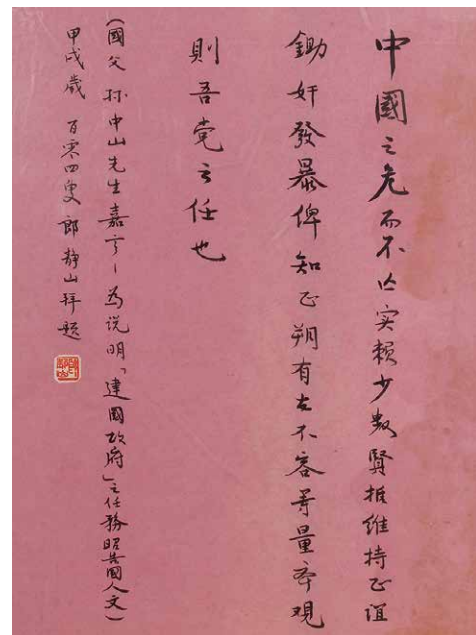 中國之危而不亡实賴少数賢哲維持正誼
鋤奸發暴俾知正朔有在不容等量齐观
則吾党之任也
(國父孫中山先生嘉言—为说明「建國政府」之任務昭告國人文)
甲戌歲 百零四叟 郎静山拜题